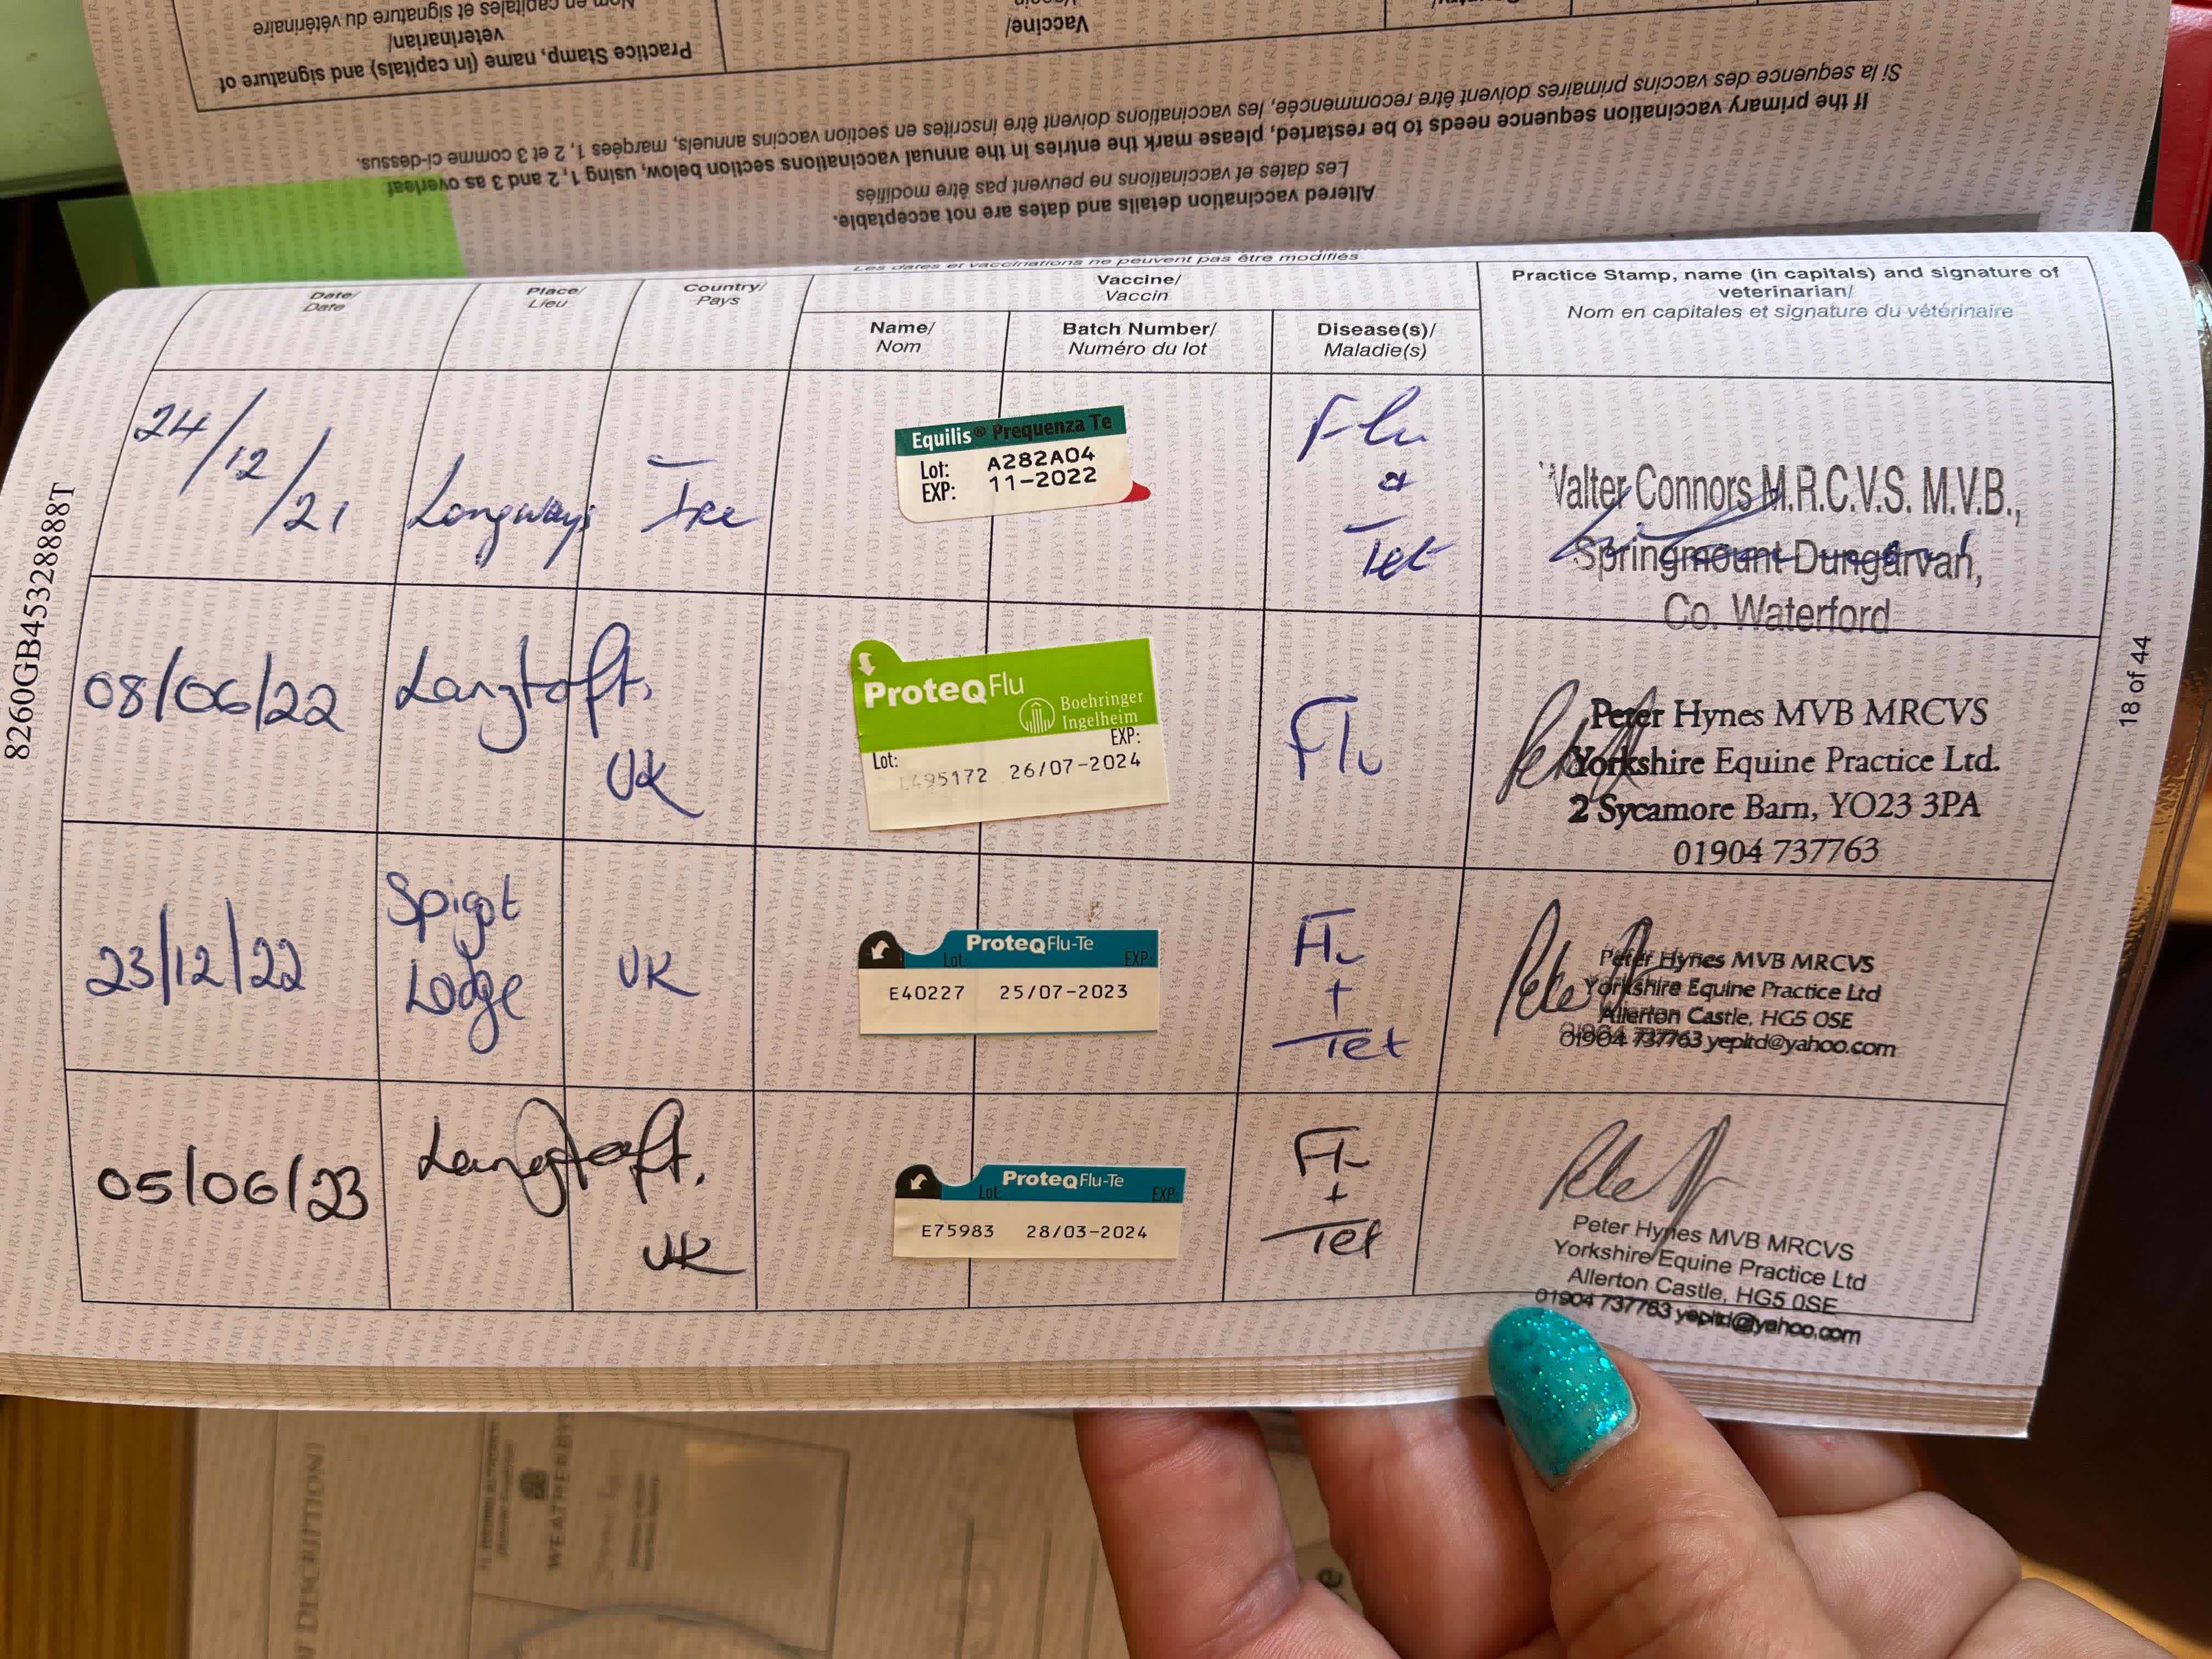 Nom en capitales et signature du vétérinaire
veterinarian/
Practice Stamp, name (in capitals) and signature of
Vaccine/
Si la sequence des vaccins primaires doivent être recommencée, les vaccinations doivent être inscrites en section vaccins annuels, marqées 1, 2 et 3 comme ci-dessus.
If the primary vaccination sequence needs to be restarted, please mark the entries in the annual vaccinations section below, using 1, 2 and 3 as overleaf
Les dates et vaccinations ne peuvent pas être modifiés
Altered vaccination details and dates are not acceptable.
Les dates et vaccinations ne peuvent pas être modifiés
Date/
Date
Place/
Lieu
Country/
Pays
Vaccine/
Vaccin
Name/
Nom
Batch Number/
Numéro du lot
Disease(s)/
Maladie(s)
Practice Stamp, name (in capitals) and signature of
veterinarian/
Nom en capitales et signature du vétérinaire
24/12/21
Longways
Ire
Equilis® Prequenza Te
Lot: A282A04
EXP: 11-2022
Flu
Tet
Walter Connors M.R.C.V.S. M.V.B.,
Springmount Dungarvan,
Co. Waterford
08/06/22
Langtoft,
UK
ProteqFlu
Boehringer
Ingelheim
Lot: EXP:
L495172 26/07-2024
Flu
Peter Hynes MVB MRCVS
Yorkshire Equine Practice Ltd.
2 Sycamore Barn, YO23 3PA
01904 737763
23/12/22
Spigot
Lodge
UK
ProteqFlu-Te
Lot: EXP:
E40227 25/07-2023
Flu
+
Tet
Peter Hynes MVB MRCVS
Yorkshire Equine Practice Ltd
Allerton Castle, HG5 0SE
01904 737763 yepltd@yahoo.com
05/06/23
Langtoft,
UK
ProteqFlu-Te
Lot: EXP:
E75983 28/03-2024
Flu
+
Tet
Peter Hynes MVB MRCVS
Yorkshire Equine Practice Ltd
Allerton Castle, HG5 0SE
01904 737763 yepltd@yahoo.com
8260GB45328888T
18 of 44
WEATHERBYS